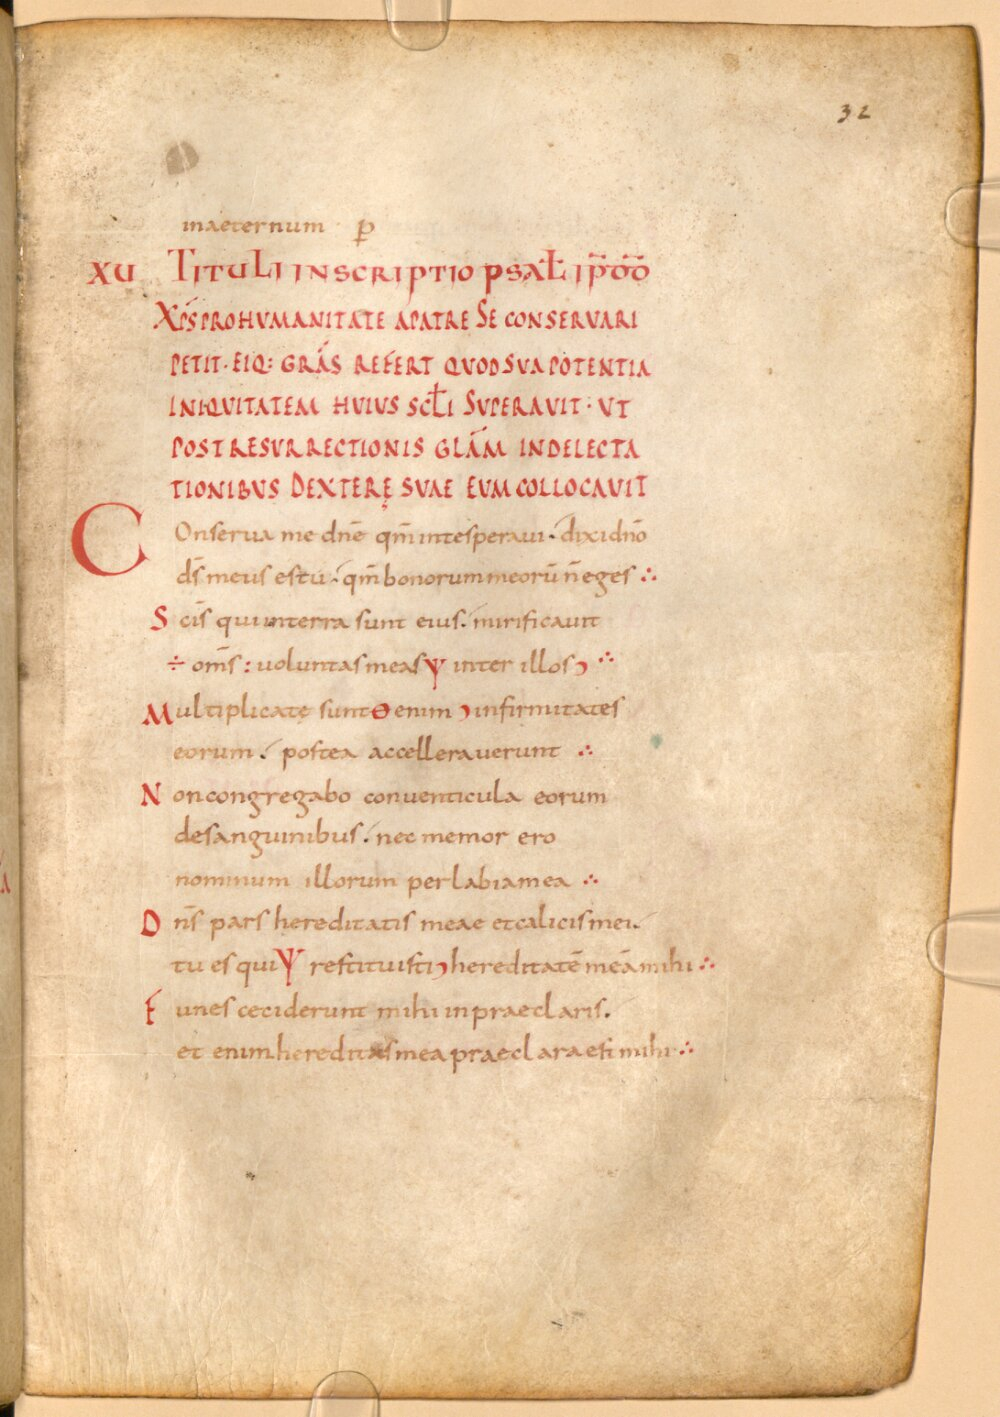 32
inaeternum p̄
XU TITULI INSCRIPTIO PSAŁ IP̄Ō Ō
XP̄S PRO HUMANITATE A PATRE SE CONSERVARI
PETIT· EIQ: GRĀS REFERT QUOD SUA POTENTIA
INIQUITATEM HUIUS SCŁI SUPERAVIT· UT
POST RESURRECTIONIS GLĀM IN DELECTA
TIONIBUS DEXTERĘ SUAE EUM COLLOCAVIT
COnserua me dn̄e qm̄ inte speraui· dixi dn̄o
ds̄ meus es tū· qm̄ bonorum meorū n̄ eges ∴
S cīs qui in terra sunt eius· mirificauit
÷ om̄s : uoluntas meas Ψ inter illos ϶ ∴
Multiplicatę sunt ϴ enim ϶ infirmitates
eorum· postea accellerauerunt ∴
Non congregabo conuenticula eorum
de sanguinibus· nec memor ero
nominum illorum per labia mea ∴
D n̄s pars hereditatis meae et calicis mei·
tu es qui Ψ restituisti ϶ hereditatē meā mihi ∴
Funes ceciderunt mihi in praeclaris·
et enim hereditas mea praeclara est mihi ∴